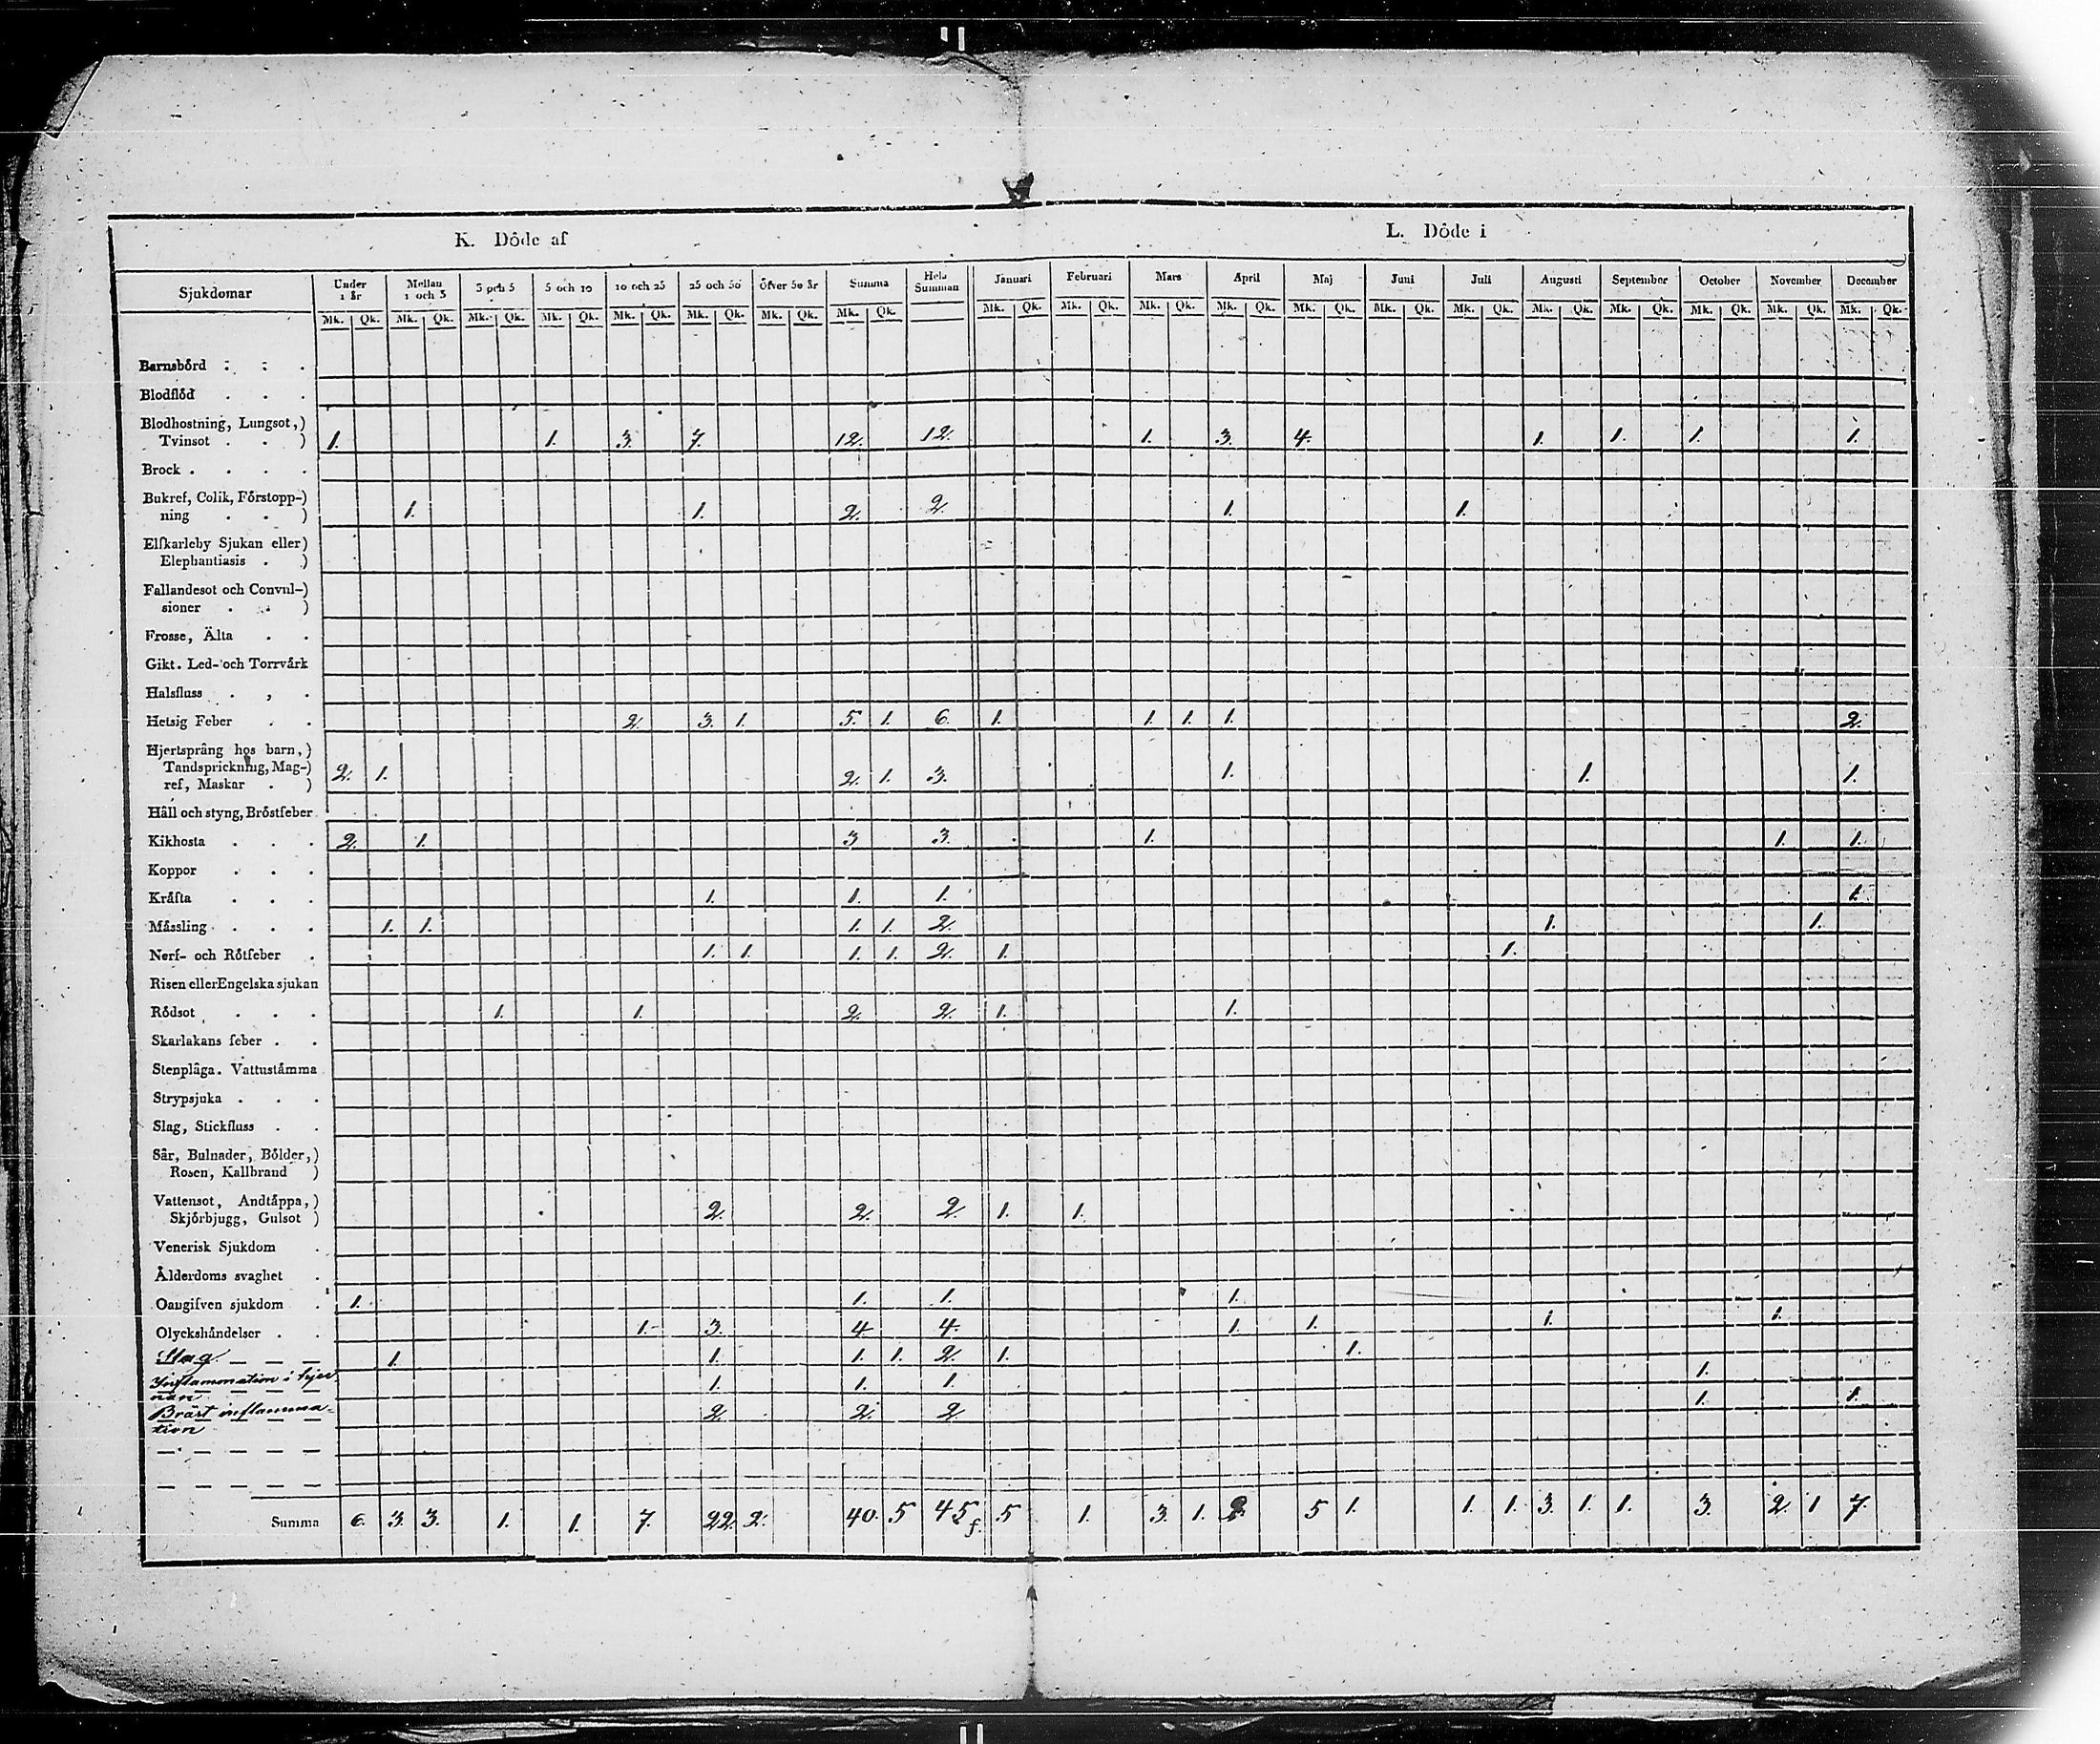 K. Döde af
L. Döde i
Sjukdomar Under 1 år Mellan 1 och 3 3 och 5 5 och 10 10 och 25 25 och 50 Öfver 50 år Summa Hela Summan Januari Februari Mars April Maj Juni Juli Augusti September October November December
Mk. Qk. Mk. Qk. Mk. Qk. Mk. Qk. Mk. Qk. Mk. Qk. Mk. Qk. Mk. Qk. Mk. Qk. Mk. Qk. Mk. Qk. Mk. Qk. Mk. Qk. Mk. Qk. Mk. Qk. Mk. Qk. Mk. Qk. Mk. Qk. Mk. Qk. Mk. Qk.
Barnsbörd
Blodflöd
Blodhostning, Lungsot,)
Tvinsot . . ) 1. 1. 3. 7. 12. 12. 1. 3. 4. 1. 1. 1. 1.
Brock . . . .
Bukref, Colik, Förstopp-)
ning . . ) 1. 1. 2. 2. 1. 1.
Elfkarleby Sjukan eller)
Elephantiasis . )
Fallandesot och Convul-)
sioner . . )
Frosse, Älta . .
Gikt. Led- och Torrvärk
Halsfluss . , .
Hetsig Feber . . 2. 3. 1. 5. 1. 6. 1. 1. 1. 1. 2.
Hjertsprång hos barn,)
Tandsprickning, Mag-)
ref, Maskar . ) 2. 1. 2. 1. 3. 1. 1. 1.
Håll och styng, Bröstfeber
Kikhosta . . . 2. 1. 3 3. 1. 1. 1.
Koppor . . .
Kräfta . . . 1. 1. 1. 1.
Mässling . . . 1. 1. 1. 1. 2. 1. 1.
Nerf- och Rötfeber . 1. 1. 1. 1. 2. 1. 1.
Risen eller Engelska sjukan
Rödsot . . . 1. 1. 2. 2. 1. 1.
Skarlakans feber . .
Stenplåga. Vattustämma
Strypsjuka . . .
Slag, Stickfluss . .
Sår, Bulnader, Bölder,)
Rosen, Kallbrand )
Vattensot, Andtäppa,)
Skjörbjugg, Gulsot ) 2. 2. 2. 1. 1.
Venerisk Sjukdom .
Ålderdoms svaghet .
Oangifven sjukdom . 1. 1. 1. 1.
Olyckshändelser . . 1. 3. 4 4. 1. 1. 1. 1.
Slag 1. 1. 1. 1. 2. 1. 1.
Inflammation i hjer 1. 1. 1. 1.
nan
Bräst inflamma- 2. 2. 2. 1. 1.
tion
Summa 6. 3. 3. 1. 1. 7. 22. 2. 40. 5 45 5 1. 3. 1. 5 1. 1. 1. 3. 1. 1. 3. 2. 1 7.